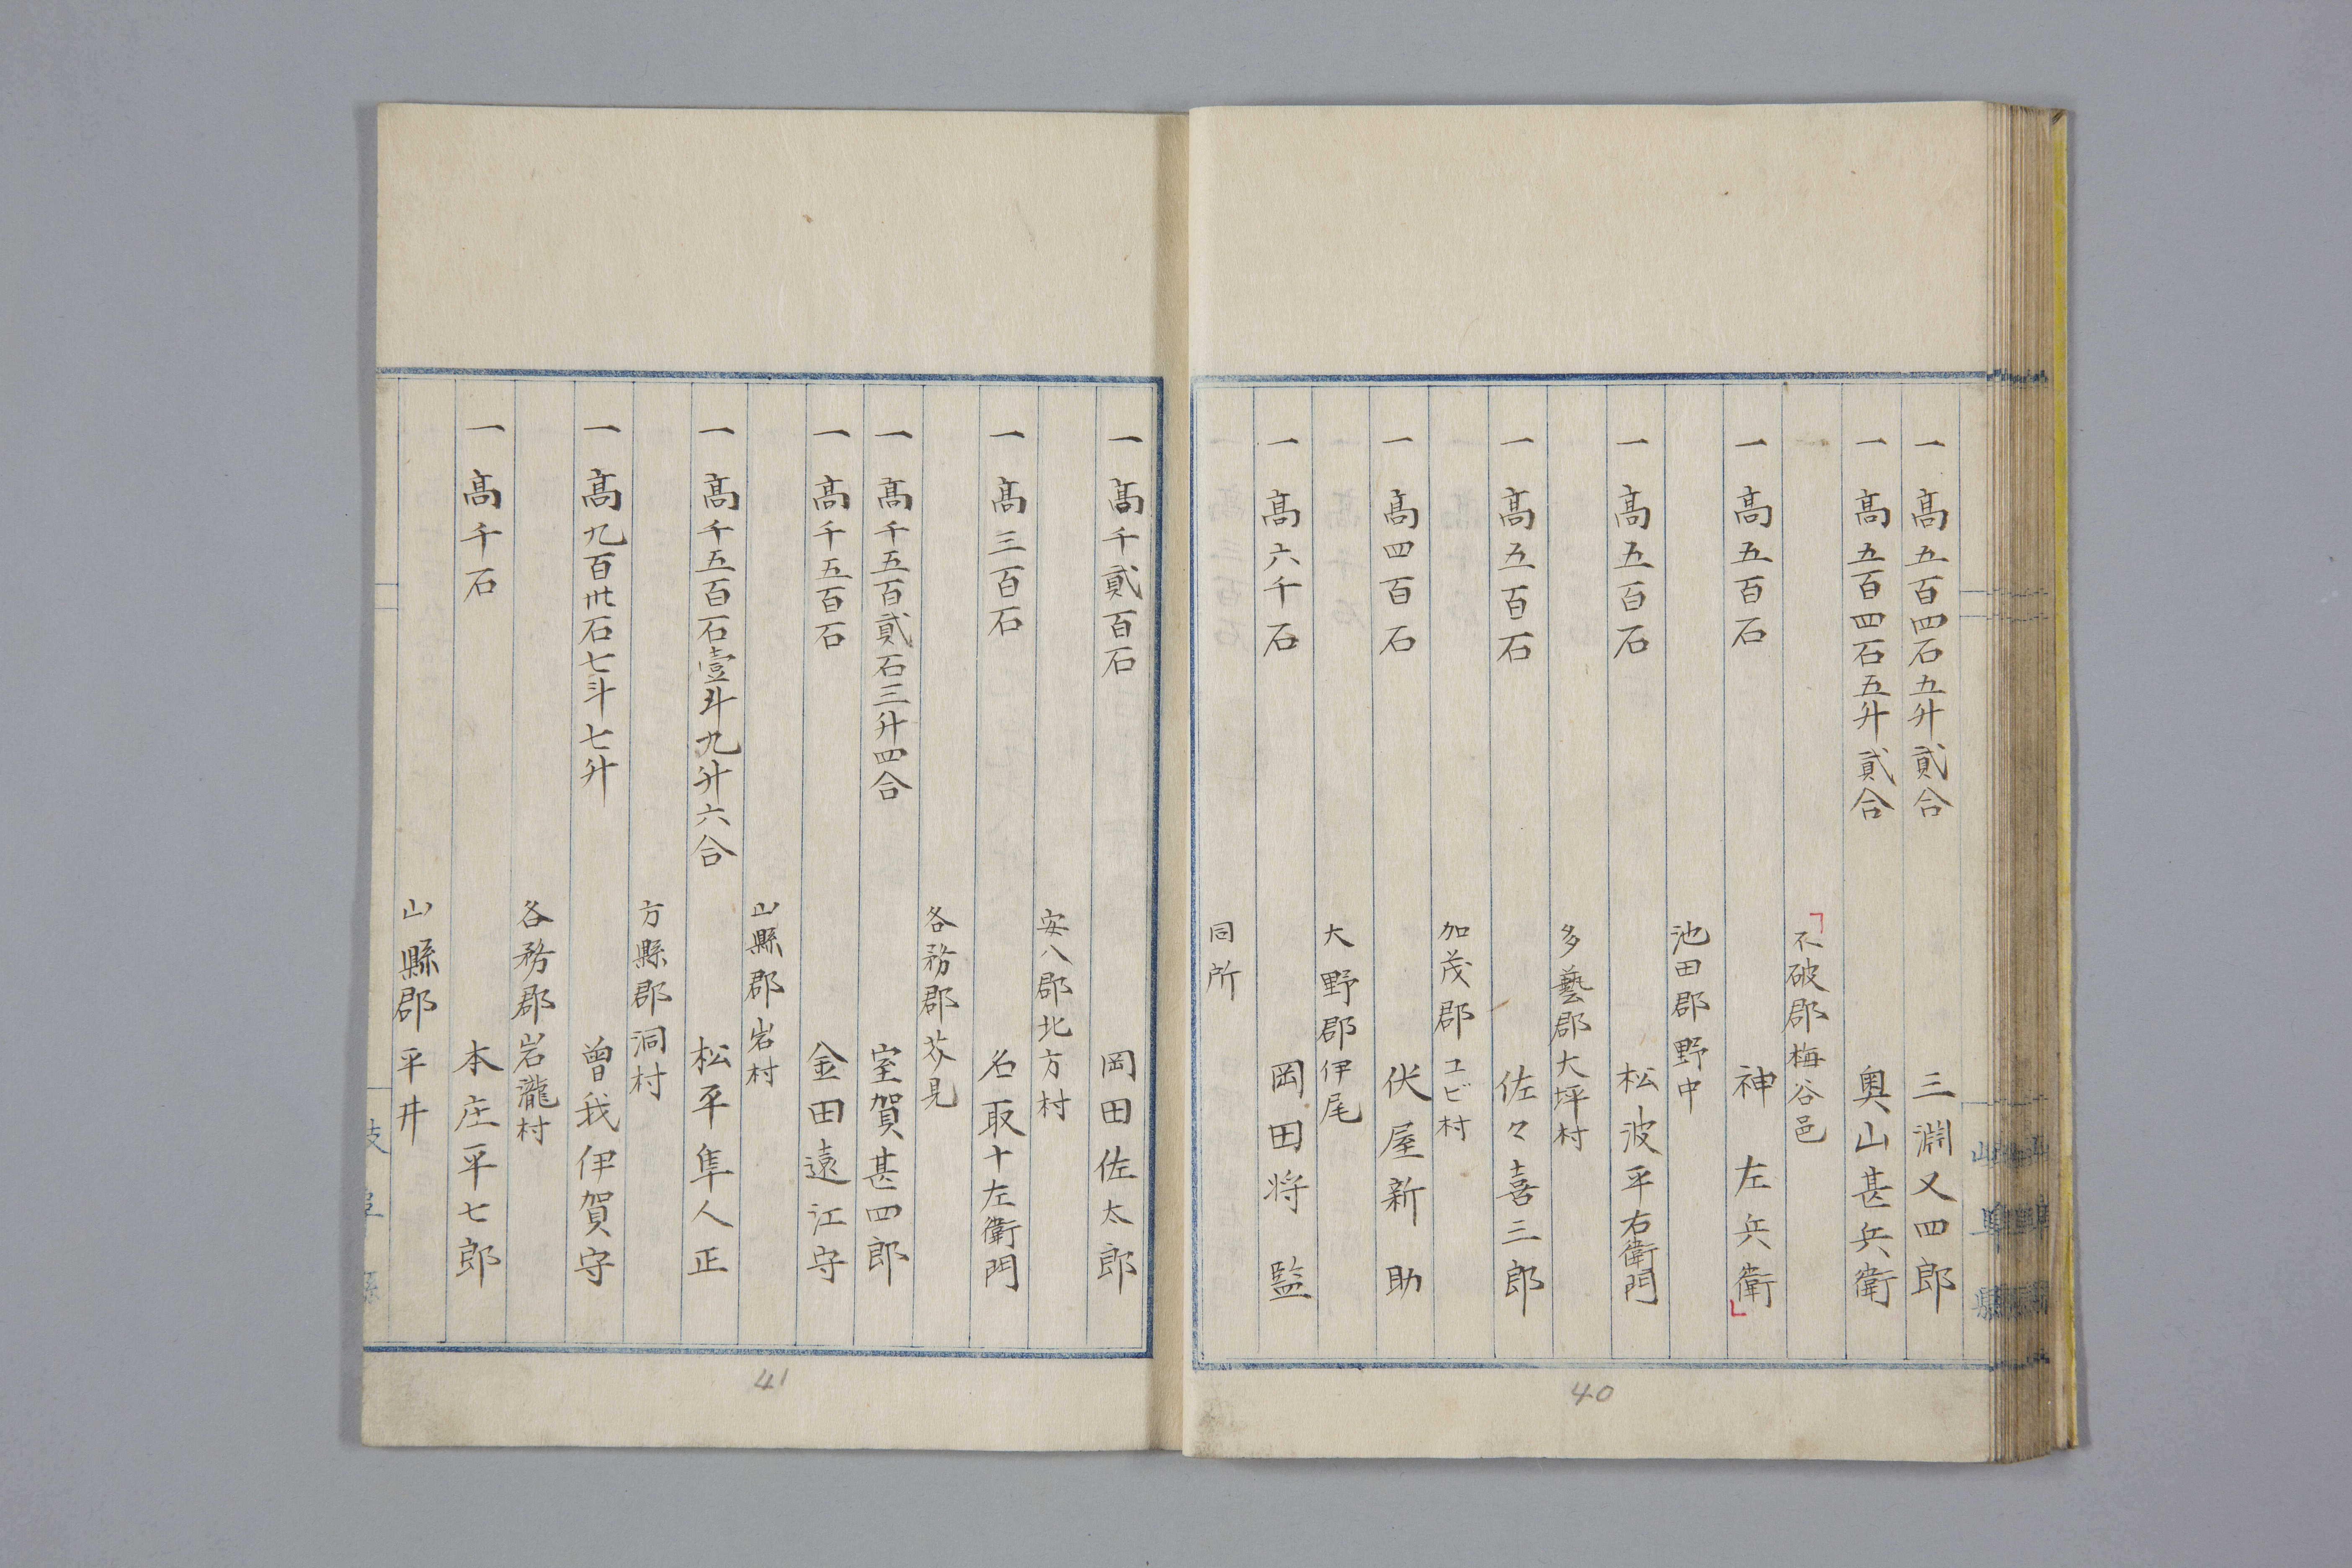 一高五百四石五升貳合　三淵又四郎
一高五百四石五升貳合　奥山甚兵衛
「不破郡梅谷邑
一高五百石　神左兵衛」
池田郡野中
一高五百石　松波平右衛門
多藝郡大坪村
一高五百石　佐々喜三郎
加茂郡ヱビ村
一高四百石　伏屋新助
大野郡伊尾
一高六千石　岡田将監
同所
40
一高千貳百石　岡田佐太郎
安八郡北方村
一高三百石　名取十左衛門
各務郡芥見
一高千五百貳石三升四合　室賀甚四郎
一高千五百石　金田遠江守
山縣郡岩村
一高千五百石壹斗九升六合　松平隼人正
方縣郡洞村
一高九百卅石七斗七升　曽我伊賀守
各務郡岩瀧村
一高千石　本庄平七郎
山縣郡平井
41